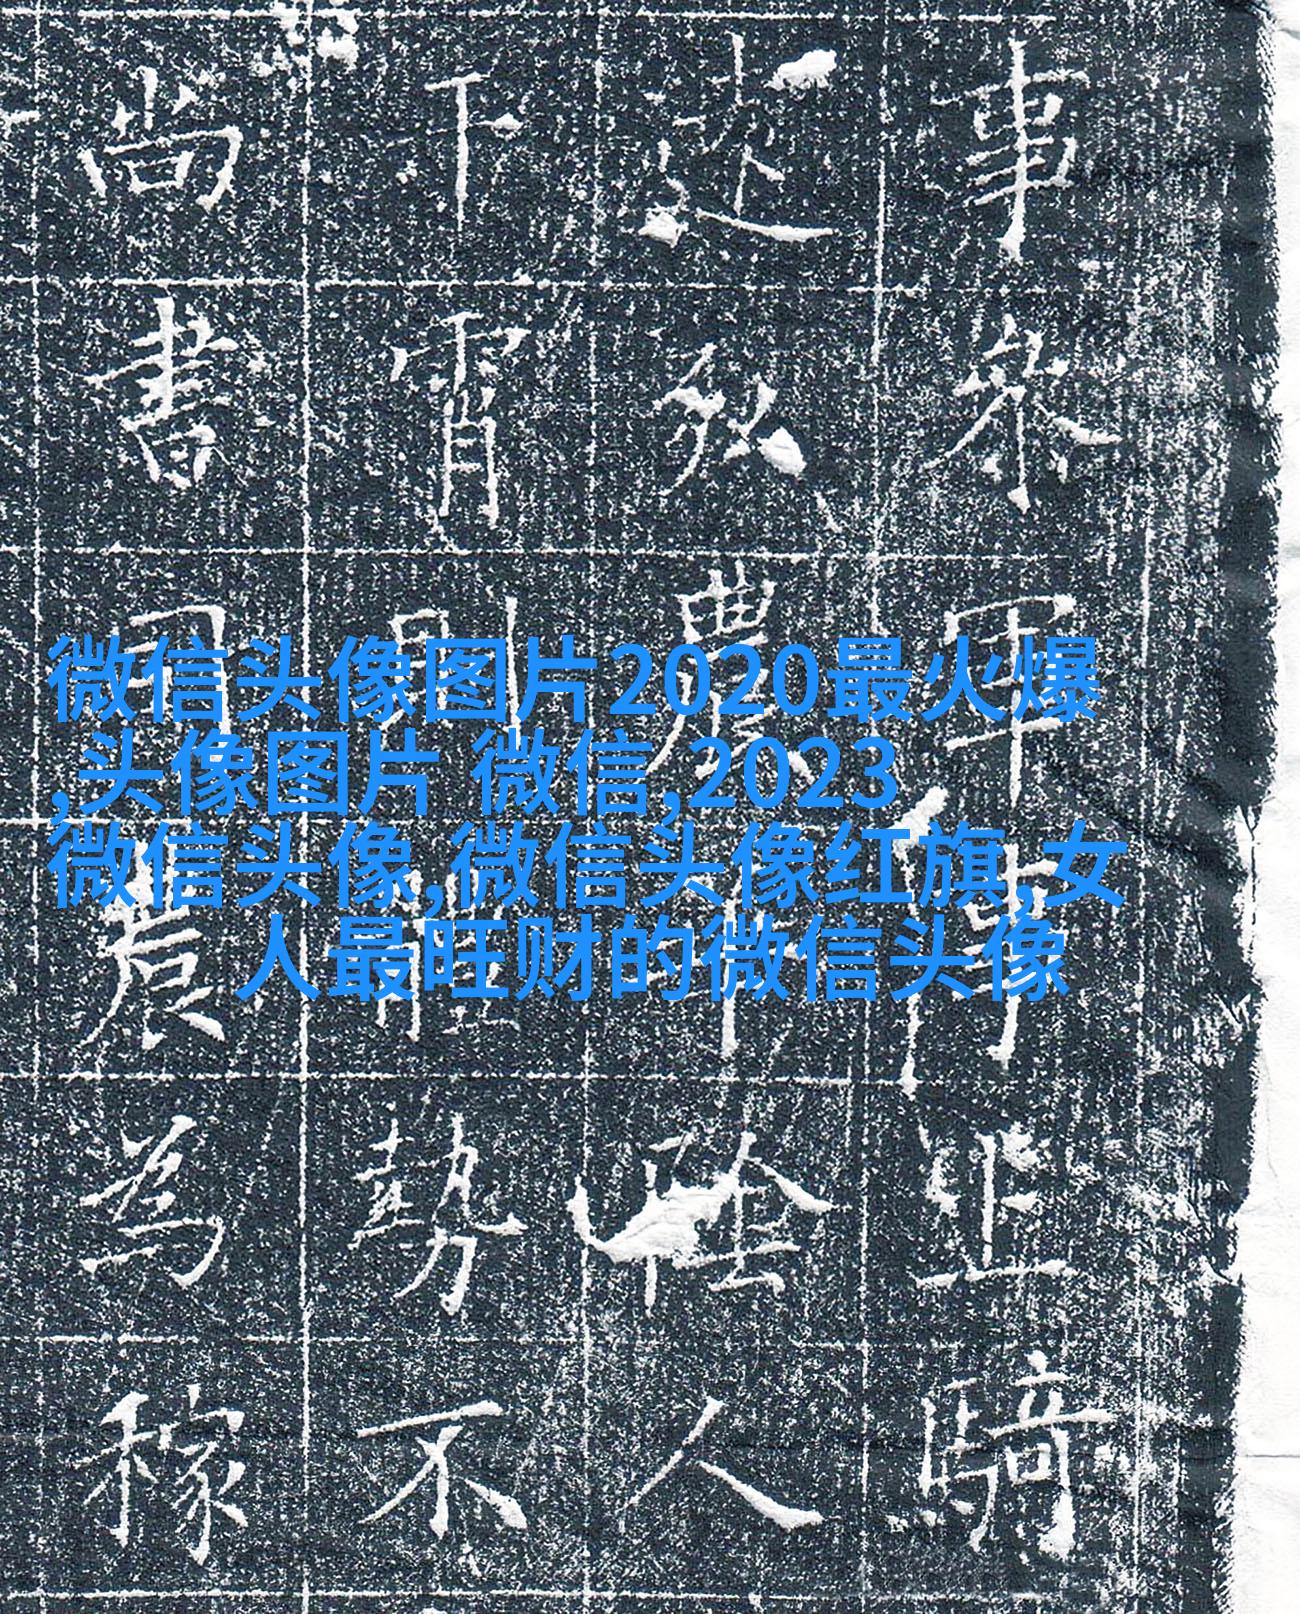 事參軍事騎
弘農華陰人
下霄則體勢不
尚書司農為稼
微信头像图片2020最火爆
,头像图片 微信,2023
微信头像,微信头像红旗,女
人最旺财的微信头像